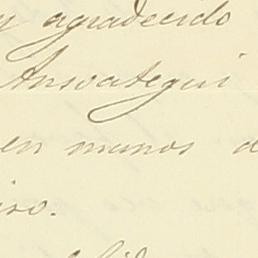 y agradecido
Ansoategui
en manos d
iso.